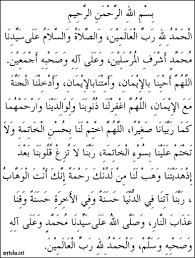 بِسْمِ اللهِ الرَّحْمَنِ الرَّحِيْمِ
الْحَمْدُ لِلّهِ رَبِّ الْعَالَمِيْنَ، وَالصَّلَاةُ وَالسَّلَامُ عَلَى سَيِّدِنَا
مُحَمَّدٍ أَشْرَفِ الْمُرْسَلِيْنَ، وَعَلَى آلِهِ وَصَحْبِهِ أَجْمَعِيْنَ.
اللَّهُمَّ أَحْيِنَا بِالْإِيْمَانِ، وَأَمِتْنَا بِالْإِيْمَانِ، وَأَدْخِلْنَا الْجَنَّةَ
مَعَ الْإِيْمَانِ، اللَّهُمَّ اغْفِرْ لَنَا ذُنُوْبَنَا وَلِوَالِدَيْنَا وَارْحَمْهُمَا
كَمَا رَبَّيَانَا صِغَارًا، اللَّهُمَّ اخْتِمْ لَنَا بِحُسْنِ الْخَاتِمَةِ وَلَا
تَخْتِمْ عَلَيْنَا بِسُوْءِ الْخَاتِمَةِ، رَبَّنَا لَا تُزِغْ قُلُوْبَنَا بَعْدَ
إِذْ هَدَيْتَنَا وَهَبْ لَنَا مِنْ لَدُنْكَ رَحْمَةً إِنَّكَ أَنْتَ الْوَهَّابُ
رَبَّنَا آتِنَا فِي الدُّنْيَا حَسَنَةً وَفِي الْآخِرَةِ حَسَنَةً وَقِنَا
عَذَابَ النَّارِ، وَصَلَّى اللهُ عَلَى سَيِّدِنَا مُحَمَّدٍ وَعَلَى آلِهِ
وَصَحْبِهِ وَسَلَّمَ، وَالْحَمْدُ لِلّهِ رَبِّ الْعَالَمِيْنَ.